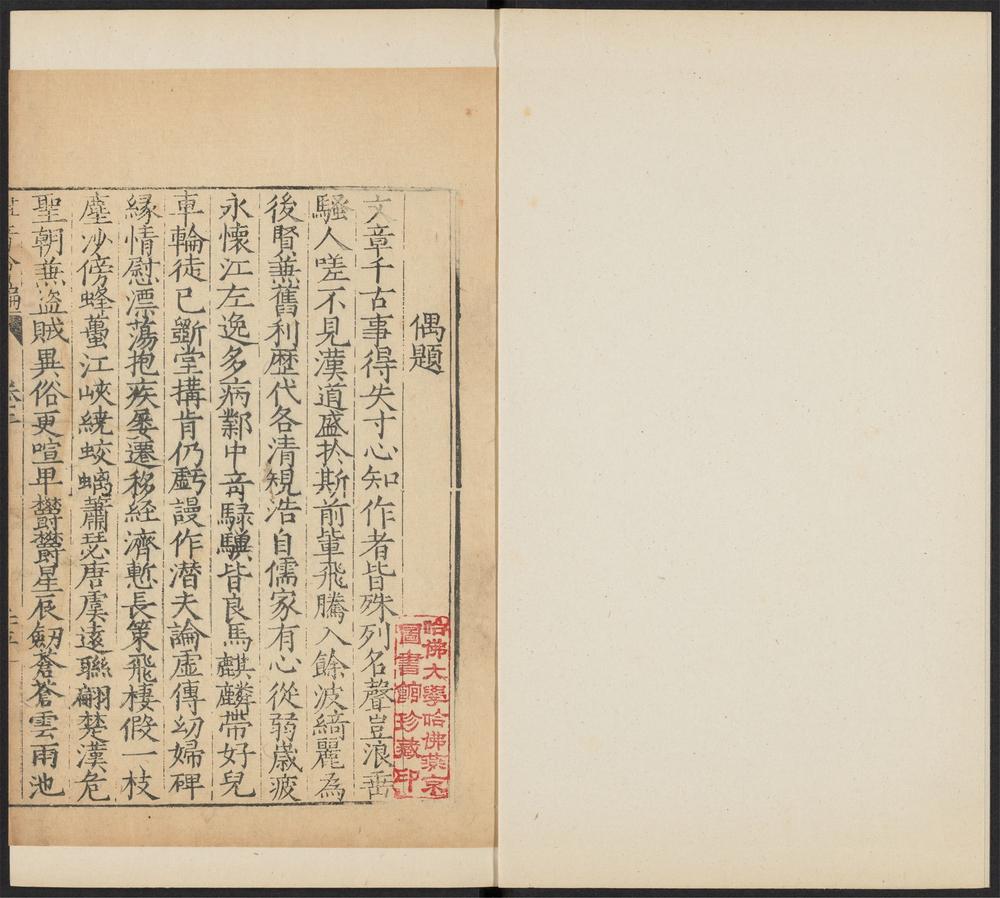 偶題
文章千古事得失寸心知作者皆殊列名聲豈浪垂
騷人嗟不見漢道盛於斯前輩飛騰入餘波綺麗為
後賢蕪舊利歷代各清規浩自儒家有心從弱歲疲
永懷江左逸多病鄴中竒騄驥皆良馬麒麟帶好兒
車輪徒已斵堂搆肯仍虧謾作潜夫論虛傳幼婦碑
緣情慰漂蕩抱疾屡遷移經濟慙長策飛棲假一枝
塵沙傍蜂蠆江峽繞蛟螭蕭瑟唐虞遠聯翩楚漢危
聖朝蕪盗賊異俗更喧卑欝欝星辰劒蒼蒼雲雨池
哈佛大學哈佛燕京
圖書館珍藏印